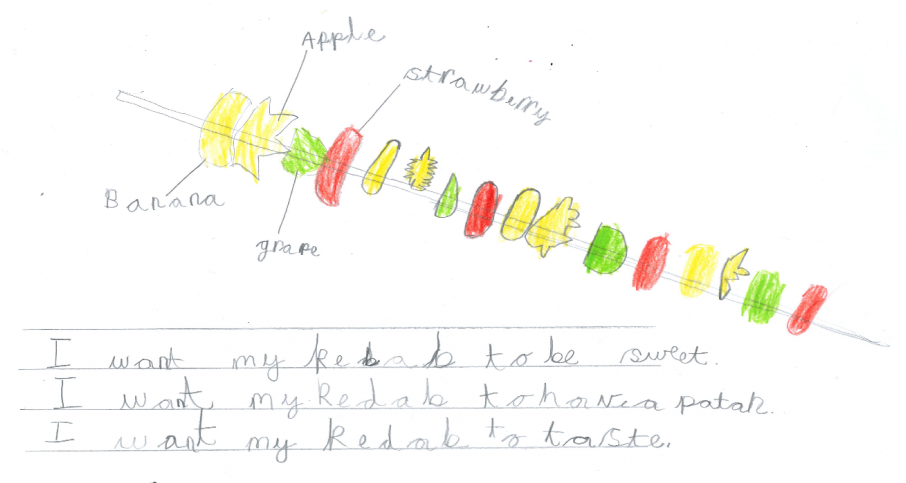 Apple
strawberry
Banana
grape
I want my kebab to be sweet.
I want my kedab to have a patah.
I want my kedab to taste.